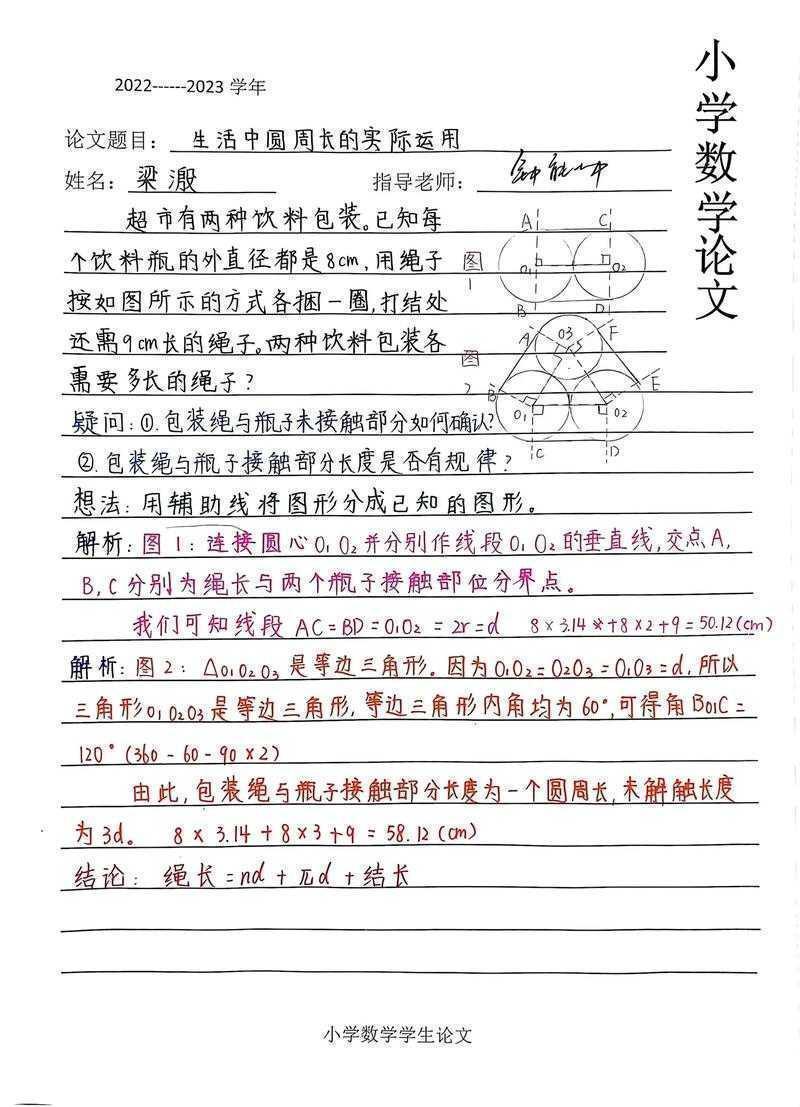 小学数学论文
2022------2023 学年
论文题目： 生活中圆周长的实际运用
姓名： 梁澱 指导老师：
超市有两种饮料包装。已知每
个饮料瓶的外直径都是8cm，用绳子
按如图所示的方式各捆一圈，打结处
还需9cm长的绳子。两种饮料包装各
需要多长的绳子？
图1
A C
O1 O2
B D
图2
A O3 F
B E
O1 O2
C D
疑问：①.包装绳与瓶子未接触部分如何确认？
②.包装绳与瓶子接触部分长度是否有规律？
想法：用辅助线将图形分成已知的图形。
解析：图1：连接圆心O1O2并分别作线段O1O2的垂直线，交点A，
B，C分别为绳长与两个瓶子接触部位分界点。
我们可知线段AC=BD=O1O2=2r=d 8×3.14+8×2+9=50.12(cm)
解析：图2：△O1O2O3是等边三角形。因为O1O2=O2O3=O1O3=d，所以
三角形O1O2O3是等边三角形，等边三角形内角均为60°，可得角BO1C=
120°(360-60-90×2)
由此，包装绳与瓶子接触部分长度为一个圆周长，未解触长度
为3d。 8×3.14+8×3+9=58.12(cm)
结论：绳长=nd+πd+结长
小学数学学生论文